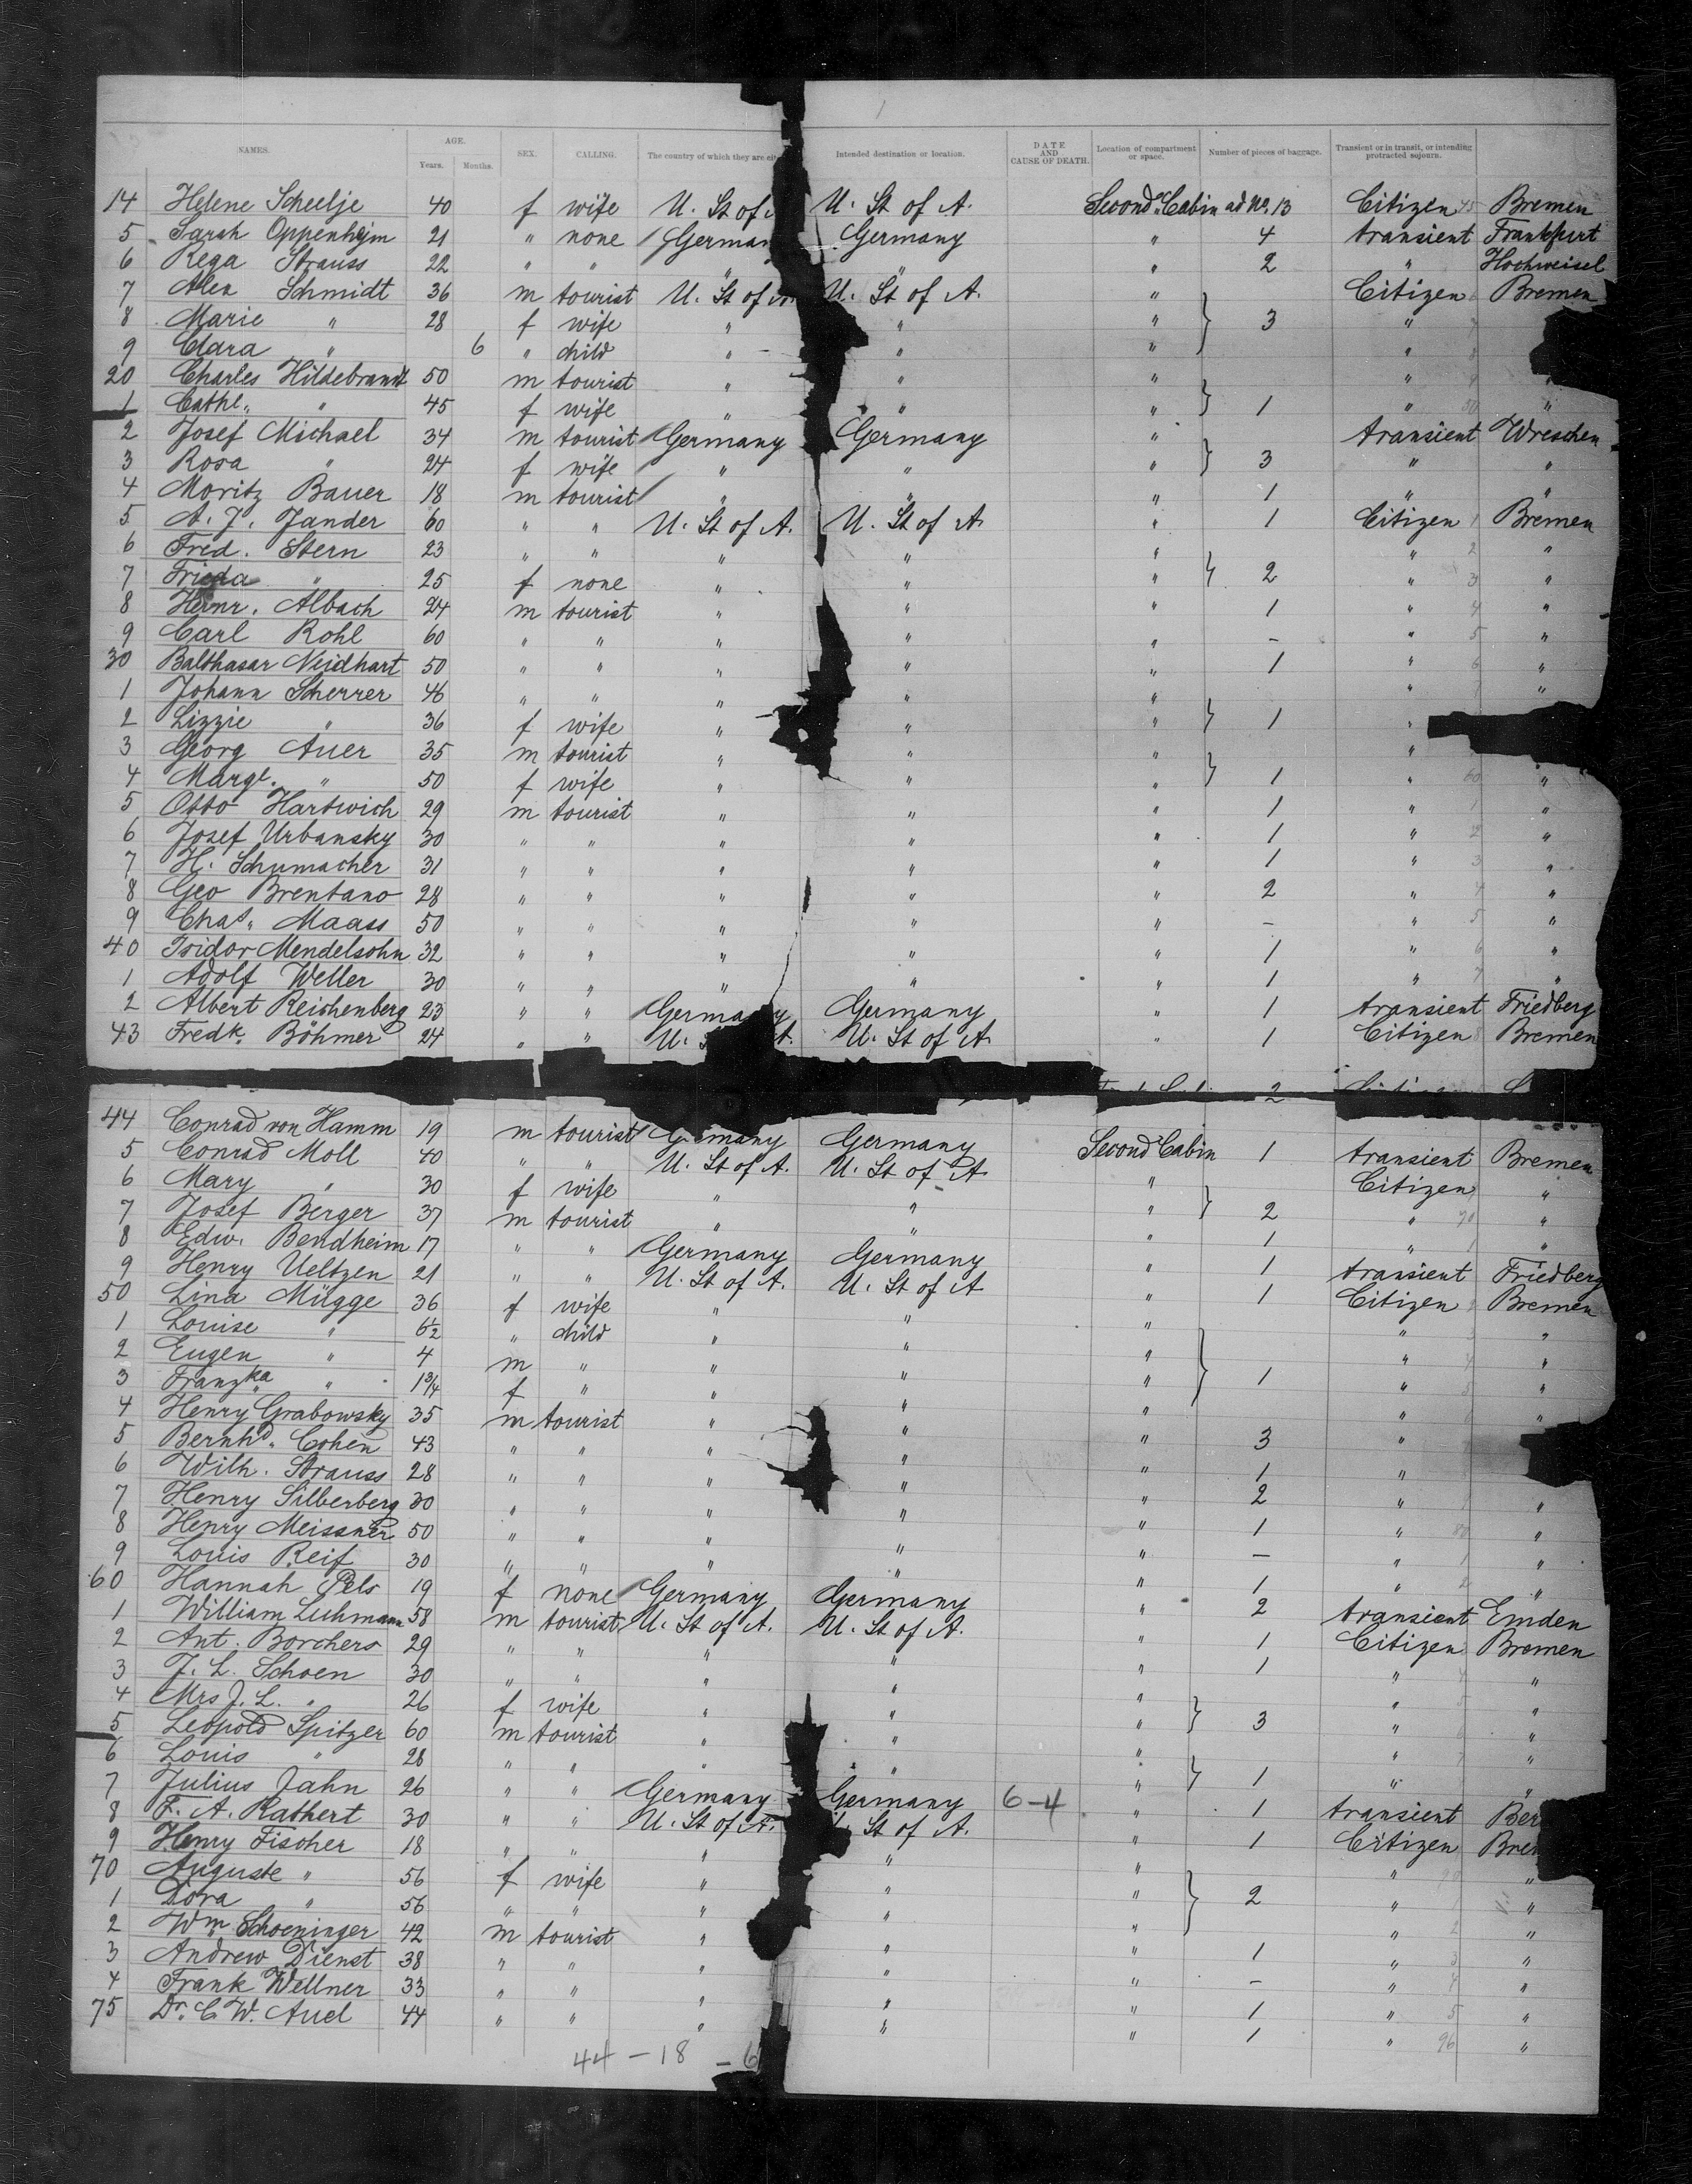 NAMES. AGE. Years. Months. SEX. CALLING. The country of which they are cit Intended destination or location. DATE AND CAUSE OF DEATH. Location of compartment or space. Number of pieces of baggage. Transient or in transit, or intending protracted sojourn.
14 Helene Scheelje 40 f wife U. St of U. St of A. Second Cabin ad No. 13 Citizen 45 Bremen
5 Sarah Oppenheim 21 " none German Germany " 4 transient Frankfurt
6 Rega Strauss 22 " " " " " 2 " Hochweisel
7 Alex Schmidt 36 m tourist U. St of A. U. St of A. " Citizen Bremen
8 Marie " 28 f wife " " " } 3 " 7
9 Clara " 6 " child " " " " 8
20 Charles Hildebrandt 50 m tourist " " " " "
1 Cathe. " 45 f wife " " " } 1 " 50 "
2 Josef Michael 34 m tourist Germany Germany " transient Wreschen
3 Rosa " 24 f wife " " " } 3 " "
4 Moritz Bauer 18 m tourist " " " 1 " "
5 A. J. Jander 60 " " U. St of A. U. St of A. " 1 Citizen 1 Bremen
6 Fred. Stern 23 " " " " " " 2 "
7 Frieda " 25 f none " " " } 2 " 3 "
8 Heinr. Albach 24 m tourist " " " 1 " 4 "
9 Carl Rohl 60 " " " " " – " 5 "
30 Balthasar Neidhart 50 " " " " " 1 " 6 "
1 Johann Scherrer 46 " " " " " " 7 "
2 Lizzie " 36 f wife " " " } 1 "
3 Georg Auer 35 m tourist " " " "
4 Marge. " 50 f wife " " " } 1 " 60 "
5 Otto Hartwich 29 m tourist " " " 1 " 1 "
6 Josef Urbansky 30 " " " " " 1 " 2 "
7 H. Schumacher 31 " " " " " 1 " 3 "
8 Geo Brentano 28 " " " " " 2 " 4 "
9 Chas. Maass 50 " " " " " – " 5 "
40 Isidor Mendelsohn 32 " " " " " 1 " 6 "
1 Adolf Weller 30 " " " " " 1 " 7 "
2 Albert Reichenberg 23 " " Germany Germany " 1 transient Friedberg
43 Fredk. Böhmer 24 " " U. A. U. St of A. " 1 Citizen 8 Bremen
2
44 Conrad von Hamm 19 m tourist Germany Germany Second Cabin 1 transient Bremen
5 Conrad Moll 40 " " U. St of A. U. St of A " Citizen "
6 Mary " 30 f wife " " " } 2 " 70 "
7 Josef Berger 37 m tourist " " " 1 " 1 "
8 Edw. Bendheim 17 " " Germany Germany " 1 transient Friedberg
9 Henry Ueltzen 21 " " U. St of A. U. St of A " 1 Citizen 2 Bremen
50 Lina Mügge 36 f wife " " " " 3 "
1 Louise " 6½ " child " " " } 1 " 4 "
2 Eugen " 4 m " " " " " 5 "
3 Franzka " 1¾ f " " " " " "
4 Henry Grabowsky 35 m tourist " " " 3 "
5 Bernhd. Cohen 43 " " " " " 1 "
6 Wilh. Strauss 28 " " " " " 2 " "
7 Henry Silberberg 30 " " " " " 1 " 80 "
8 Henry Meissner 50 " " " " " – " 1 "
9 Louis Reif 30 " " " " " 1 " 2 "
60 Hannah Pels 19 f none Germany Germany " 2 transient Emden
1 William Luhmann 58 m tourist U. St of A. U. St of A. " 1 Citizen Bremen
2 Ant. Borchers 29 " " " " " 1 " 4 "
3 J. L. Schoen 30 " " " " " " 5 "
4 Mrs J. L. " 26 f wife " " " } 3 " 6 "
5 Leopold Spitzer 60 m tourist " " " " 7 "
6 Louis " 28 " " " " " } 1 " "
7 Julius Jahn 26 " " Germany Germany 6–4 " 1 transient Ber
8 F. A. Rathert 30 " " U. St of A. St of A. " 1 Citizen Brem
9 Henry Fischer 18 " " " " " " 90 "
70 Auguste " 56 f wife " " " } 2 " 1 "
1 Dora " 56 " " " " " " 2 "
2 Wm Schoeninger 42 m tourist " " " 1 " 3 "
3 Andrew Dienst 38 " " " " " – " 4 "
4 Frank Wellner 33 " " " " " 1 " 5 "
75 Dr. C. W. Auel 44 " " " " " 1 " 96 "
44 – 18 – 6